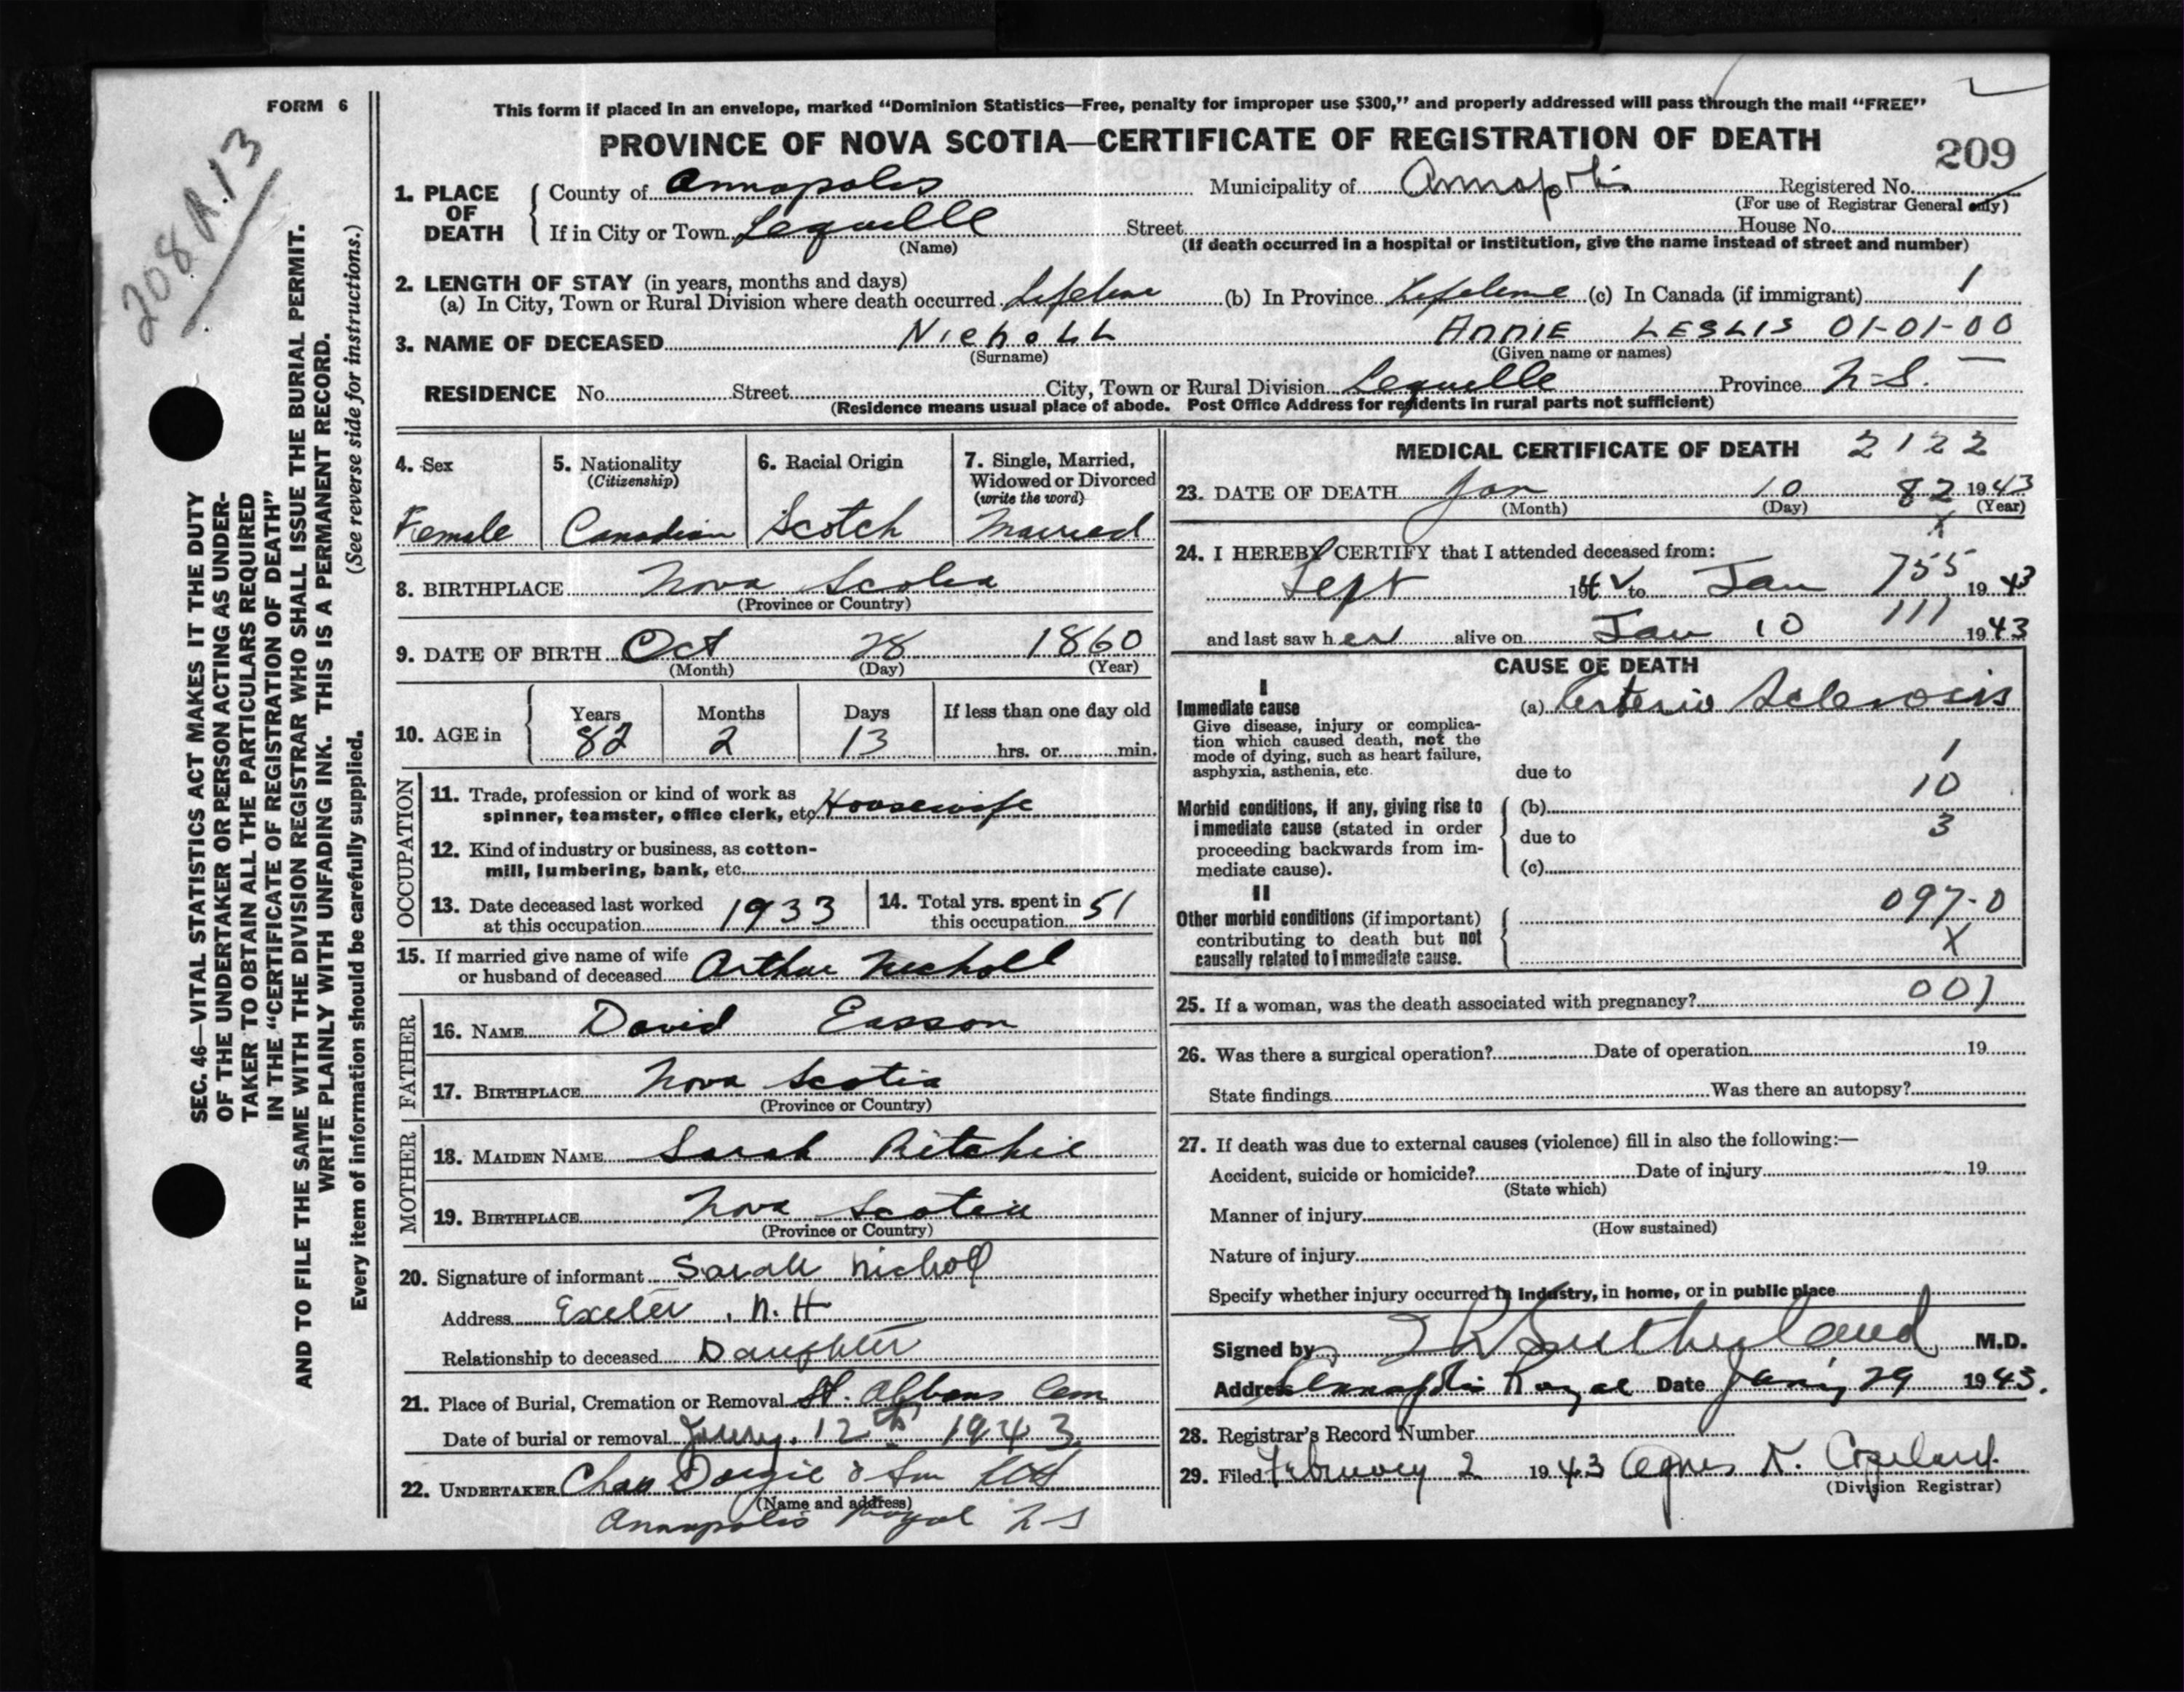 FORM 6
208 A.13
This form if placed in an envelope, marked “Dominion Statistics—Free, penalty for improper use $300,” and properly addressed will pass through the mail “FREE”
PROVINCE OF NOVA SCOTIA—CERTIFICATE OF REGISTRATION OF DEATH
209
1. PLACE OF DEATH
County of Annapolis Municipality of Annapolis Registered No.
(For use of Registrar General only)
If in City or Town Lequille Street House No.
(Name) (If death occurred in a hospital or institution, give the name instead of street and number)
2. LENGTH OF STAY (in years, months and days)
(a) In City, Town or Rural Division where death occurred Lifetime (b) In Province Lifetime (c) In Canada (if immigrant) 1
3. NAME OF DECEASED Nicholl ANNIE LESLIS 01-01-00
(Surname) (Given name or names)
RESIDENCE No. Street City, Town or Rural Division Lequille Province N-S.
(Residence means usual place of abode. Post Office Address for residents in rural parts not sufficient)
4. Sex Female
5. Nationality (Citizenship) Canadian
6. Racial Origin Scotch
7. Single, Married, Widowed or Divorced (write the word) Married
8. BIRTHPLACE Nova Scotia
(Province or Country)
9. DATE OF BIRTH Oct 28 1860
(Month) (Day) (Year)
10. AGE in Years 82 Months 2 Days 13 If less than one day old hrs. or min.
OCCUPATION
11. Trade, profession or kind of work as spinner, teamster, office clerk, etc. Housewife
12. Kind of industry or business, as cotton-mill, lumbering, bank, etc.
13. Date deceased last worked at this occupation 1933
14. Total yrs. spent in this occupation 51
15. If married give name of wife or husband of deceased Arthur Nicholl
FATHER
16. NAME David Easson
17. BIRTHPLACE Nova Scotia
(Province or Country)
MOTHER
18. MAIDEN NAME Sarah Ritchie
19. BIRTHPLACE Nova Scotia
(Province or Country)
20. Signature of informant Sarah Nicholl
Address Exeter, N.H
Relationship to deceased Daughter
21. Place of Burial, Cremation or Removal St. Albans Cem
Date of burial or removal 12th 1943
22. UNDERTAKER Chas Dargie & Son Ltd
(Name and address)
Annapolis Royal N-S
MEDICAL CERTIFICATE OF DEATH 2122
23. DATE OF DEATH Jan 10 82 1943
(Month) (Day) (Year)
X
24. I HEREBY CERTIFY that I attended deceased from:
Sept 194 to Jan 755 1943
and last saw her alive on Jan 10 111 1943
CAUSE OF DEATH
I
Immediate cause
Give disease, injury or complication which caused death, not the mode of dying, such as heart failure, asphyxia, asthenia, etc.
(a) Arterio Sclerosis
1
due to
10
Morbid conditions, if any, giving rise to immediate cause (stated in order proceeding backwards from immediate cause).
(b)
due to
3
(c)
II
Other morbid conditions (if important) contributing to death but not causally related to immediate cause.
097-0
X
25. If a woman, was the death associated with pregnancy? 001
26. Was there a surgical operation? Date of operation 19
State findings Was there an autopsy?
27. If death was due to external causes (violence) fill in also the following:—
Accident, suicide or homicide? Date of injury 19
(State which)
Manner of injury
(How sustained)
Nature of injury
Specify whether injury occurred in Industry, in home, or in public place
Signed by Sutherland M.D.
Address Annapolis Royal Date 29 1943.
28. Registrar’s Record Number
29. Filed February 2 1943 Agnes K. Copeland
(Division Registrar)
SEC. 46—VITAL STATISTICS ACT MAKES IT THE DUTY
OF THE UNDERTAKER OR PERSON ACTING AS UNDER-
TAKER TO OBTAIN ALL THE PARTICULARS REQUIRED
IN THE “CERTIFICATE OF REGISTRATION OF DEATH”
AND TO FILE THE SAME WITH THE DIVISION REGISTRAR WHO SHALL ISSUE THE BURIAL PERMIT.
WRITE PLAINLY WITH UNFADING INK. THIS IS A PERMANENT RECORD.
Every item of information should be carefully supplied. (See reverse side for instructions.)